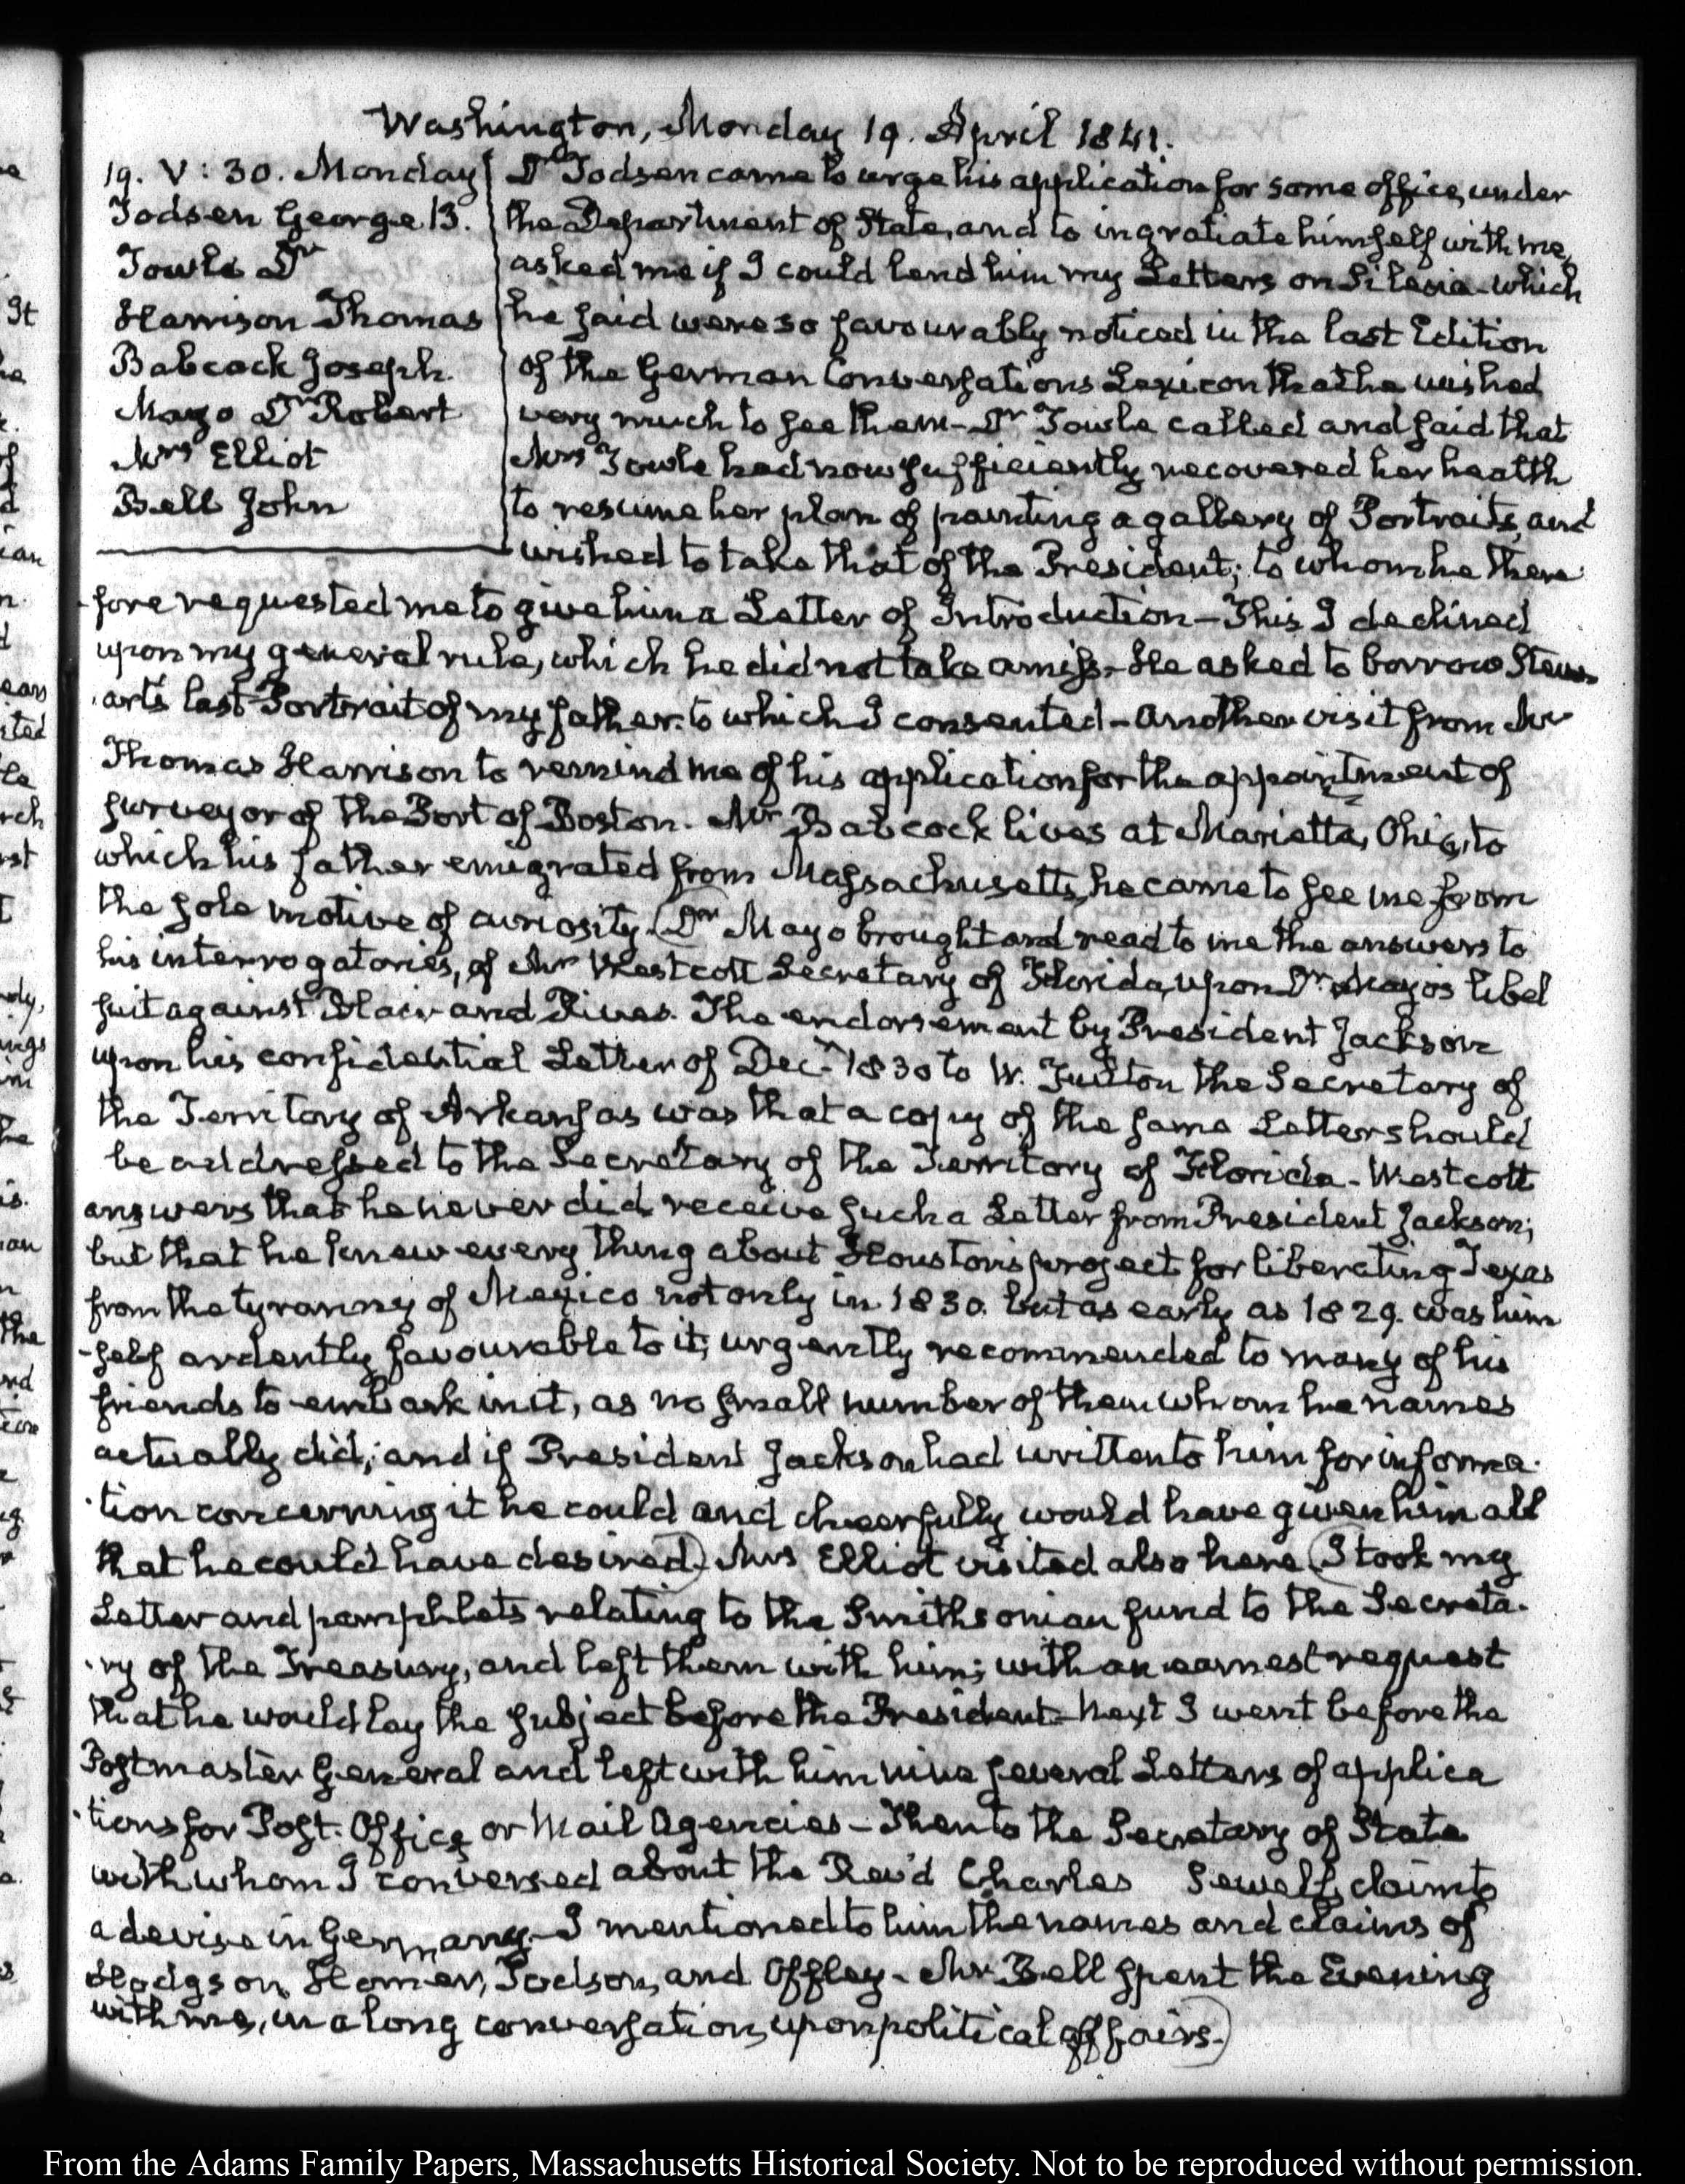 Washington, Monday 19. April 1841.
19. V: 30. Monday
Todsen George B.
Towle Dr
Harrison Thomas
Babcock Joseph.
Mayo Dr Robert
Mrs Elliot
Bell John
Dr Todsen came to urge his application for some office, under
the Department of State, and to ingratiate himself with me,
asked me if I could lend him my Letters on Silesia which
he said were so favourably noticed in the last Edition
of the German Conversations Lexicon that he wished
very much to see them— Dr Towle called and said that
Mrs Towle had now sufficiently recovered her health
to resume her plan of painting a gallery of Portraits, and
wished to take that of the President; to whom he there
-fore requested me to give him a Letter of Introduction— This I declined
upon my general rule, which he did not take amiss— He asked to borrow Stew-
-arts last Portrait of my father. to which I consented— Another visit from Mr
Thomas Harrison to remind me of his application for the appointment of
surveyor of the Port of Boston. Mr Babcock lives at Marietta, Ohio, to
which his father emigrated from Massachusetts, he came to see me from
the sole motive of curiosity. (Dr Mayo brought and read to me the answers to
his interrogatories, of Mr Westcott Secretary of Florida, upon Dr Mayo's libel
suit against Blair and Rives. The endorsement by President Jackson
upon his confidential Letter of Decr 1830 to W. Fulton the Secretary of
the Territory of Arkansas was that a copy of the same Letter should
be addressed to the Secretary of the Territory of Florida— Westcott
answers that he never did receive such a Letter from President Jackson;
but that he knew every thing about Houston's project for liberating Texas
from the tyranny of Mexico not only in 1830. but as early as 1829. was him
-self ardently favourable to it; urgently recommended to many of his
friends to embark in it, as no small number of them whom he names
actually did; and if President Jackson had written to him for informa-
-tion concerning it he could and cheerfully would have given him all
that he could have desired) Mrs Elliot visited also here (I took my
Letter and pamphlets relating to the Smithsonian fund to the Secreta-
-ry of the Treasury, and left them with him; with an earnest request
that he would lay the subject before the President— Next I went before the
Postmaster General and left with him nine several Letters of applica
-tions for Post-Office or Mail Agencies— Then to the Secretary of State
with whom I conversed about the Rev'd Charles Sewell's claim to
a devise in Germany— I mentioned to him the names and claims of
Hodgson, Homer, Todson, and Offley— Mr Bell spent the Evening
with me, in a long conversation, upon political affairs.)
From the Adams Family Papers, Massachusetts Historical Society. Not to be reproduced without permission.